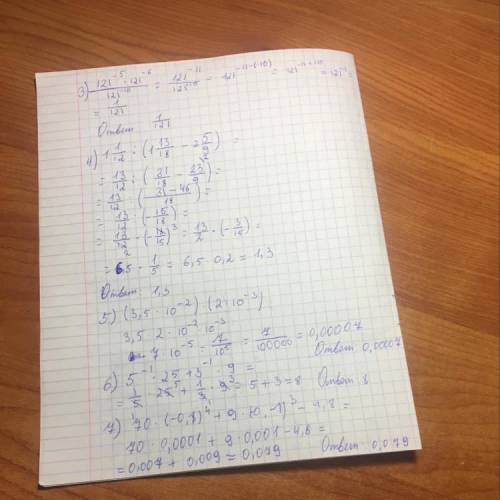 3) (121⁻⁵ · 121⁻⁶)/121⁻¹⁰ = 121⁻¹¹/121⁻¹⁰ = 121⁻¹¹⁻⁽⁻¹⁰⁾ = 121⁻¹¹⁺¹⁰ = 121⁻¹ =
= 1/121
Ответ: 1/121
4) 1 1/12 : (1 13/18 − 2 5/9) =
= 13/12 : (31/18 − 23/9) =
= 13/12 : (31−46/18) =
= 13/12 : (−15/18) =
= 13/12 · (−18/15)³ = 13/2 · (−3/15) =
= 6,5 · 1/5 = 6,5 · 0,2 = 1,3
Ответ: 1,3
5) (3,5 · 10⁻²) (2 · 10⁻³)
3,5 · 2 · 10⁻² · 10⁻³
7 · 10⁻⁵ = 7/10⁵ = 7/100000 = 0,00007
Ответ 0,00007
6) 5⁻¹ · 25 + 3⁻¹ · 9 =
= 1/5 · 25⁵ + 1/3 · 9³ = 5 + 3 = 8 Ответ: 8
7) 70 · (−0,1)⁴ + 9 · (0, −1)³ − 4,8 =
70 · 0,0001 + 9 · 0,001 − 4,8 =
= 0,007 + 0,009 = 0,079
Ответ 0,079